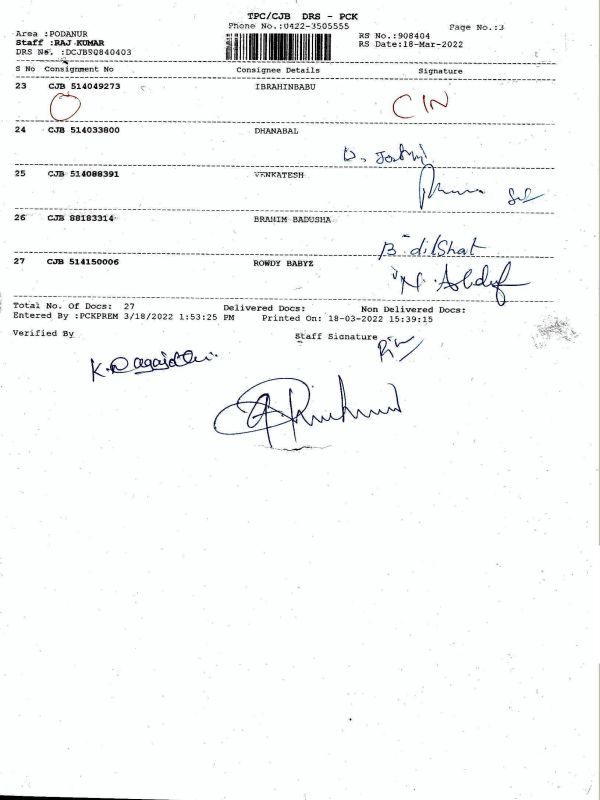 TPC/CJB DRS - PCK
Phone No.:0422-3505555 Page No.:3
Area :PODANUR RS No.:908404
Staff :RAJ KUMAR RS Date:18-Mar-2022
DRS No. :DCJB9Q840403
S No Consignment No Consignee Details Signature
23 CJB 514049273 IBRAHINBABU
CIN
24 CJB 514033800 DHANABAL
25 CJB 514088391 VENKATESH
26 CJB 88183314 BRAHIM BADUSHA
B dilShat
27 CJB 514150006 ROWDY BABYZ
Total No. Of Docs: 27 Delivered Docs: Non Delivered Docs:
Entered By :PCKPREM 3/18/2022 1:53:25 PM Printed On: 18-03-2022 15:39:15
Verified By Staff Signature